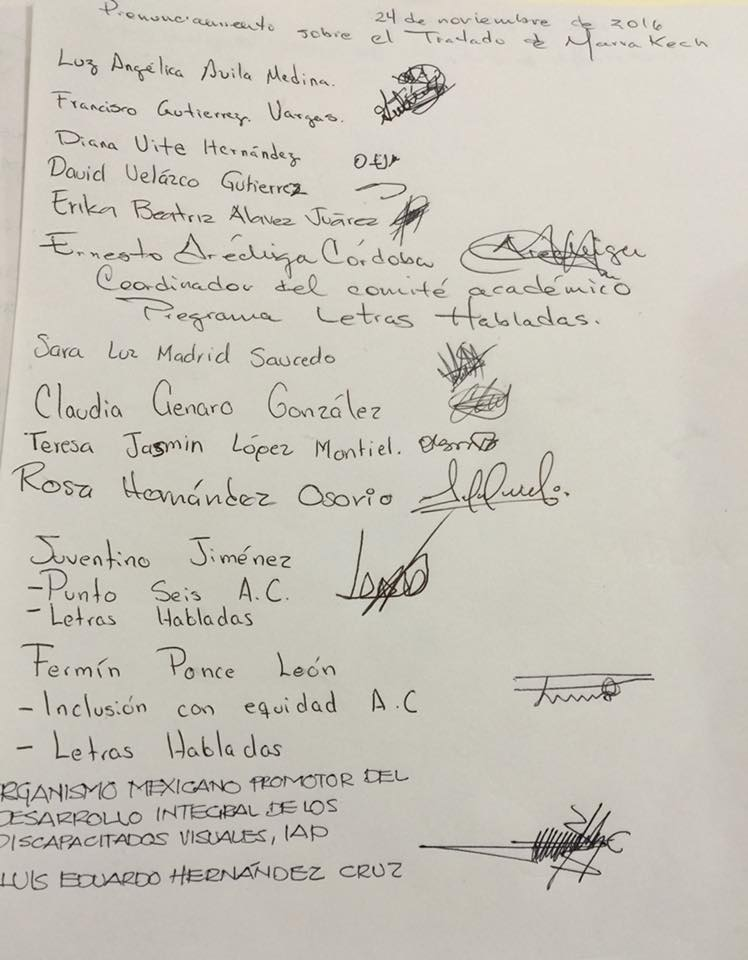 24 de noviembre de 2016
Pronunciamiento sobre el Tratado de Marra Kech
Luz Angélica Avila Medina.
Francisco Gutierrez Vargas.
Diana Vite Hernández
David Velázco Gutierrez
Erika Beatriz Alavez Juárez
Ernesto Aréchiga Córdoba
Coordinador del comité académico
Programa Letras Habladas.
Sara Luz Madrid Saucedo
Claudia Genaro González
Teresa Jasmin López Montiel.
Rosa Hernández Osorio
Juventino Jiménez
- Punto Seis A.C.
- Letras Habladas
Fermín Ponce León
- Inclusión con equidad A.C
- Letras Habladas
RGANISMO MEXICANO PROMOTOR DEL
DESARROLLO INTEGRAL DE LOS
DISCAPACITADOS VISUALES, IAP
LUIS EDUARDO HERNÁNDEZ CRUZ